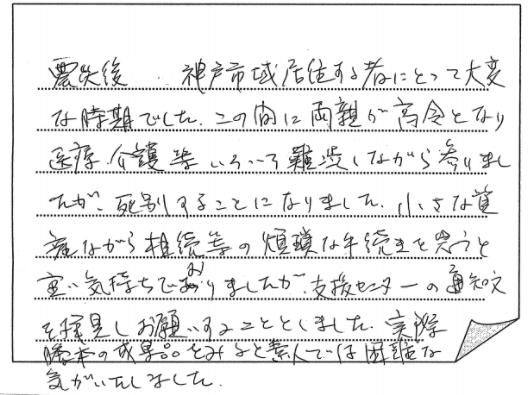 震災後 神戸市域居住する者にとって大変
な時期でした。この間に両親が高令となり
医療 介護等いろいろ難渋しながら参りまし
たが、死別することになりました。小さな資
産ながら相続等の煩瑣な手続きを思うと
重い気持ちでおりましたが、支援センターの通知文
を拝見しお願いすることとしました。実際
の成果品をみると素人では困難な
気がいたしました。